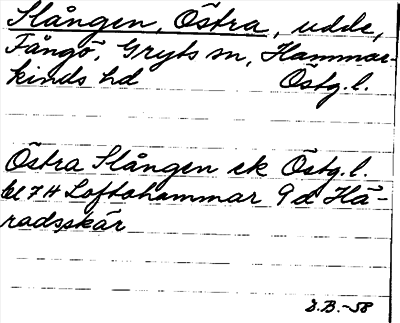 Slången, Östra, udde,
Fångö, Gryts sn, Hammar-
kinds hd Östg.l.
Östra Slången ek Östg.l.
bl 7H Loftahammar 9d Hä-
radsskär
S.B.-58